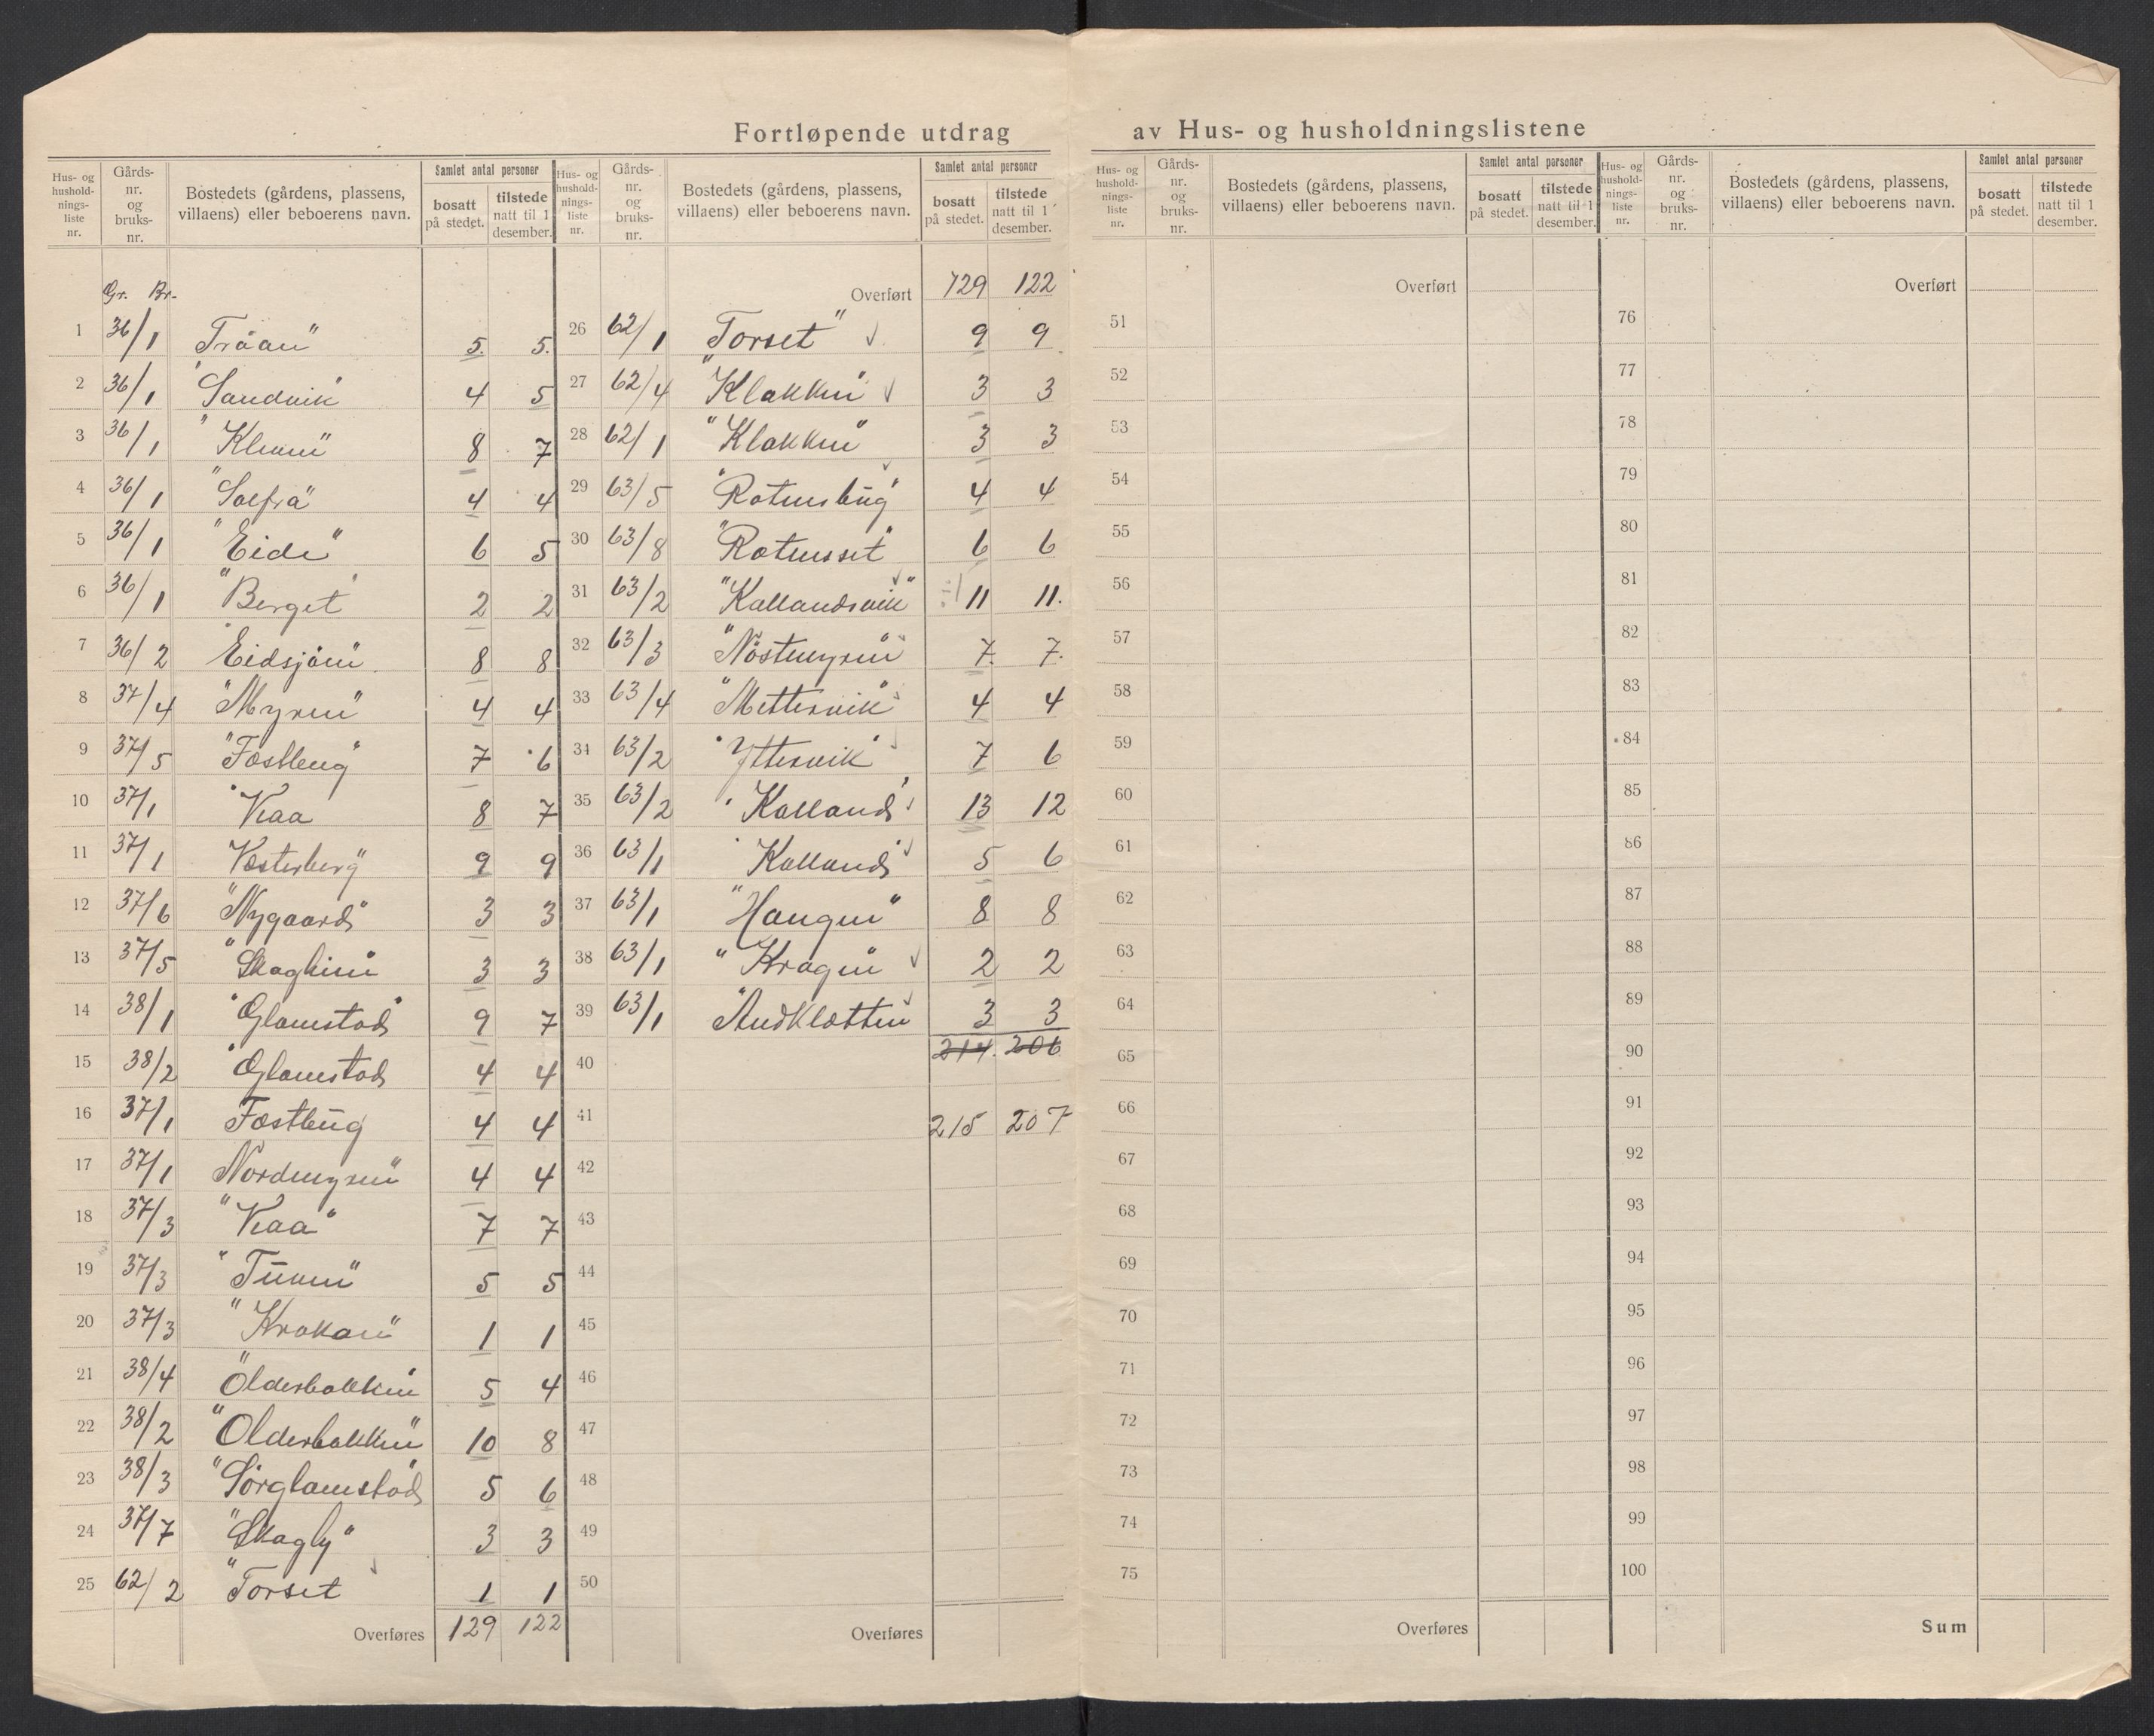 Fortløpende utdrag av Hus- og husholdningslistene
Hus- og hushold-nings-liste nr. Gårds-nr. og bruks-nr. Bostedets (gårdens, plassens, villaens) eller beboerens navn. Samlet antal personer bosatt på stedet. tilstede natt til 1 desember.
Gr. Br.
1 36/1 Tråan" 5. 5.
2 36/1 "Sandvik" 4 5
3 36/1 "Kleven" 8 7
4 36/1 "Solfra" 4 4
5 36/1 "Eide" 6 5
6 36/1 "Berget" 2 2
7 36/2 "Eidsjøen 8 8
8 37/4 "Myren" 4 4
9 37/5 "Fosteng" 7 6
10 37/1 "Kaa 8 7
11 37/1 Vesterberg" 9 9
12 37/6 "Nygaard" 3 3
13 37/5 "Skagheim" 3 3
14 38/1 "Glamstad" 9 7
15 38/2 "Glamstad 4 4
16 37/1 Fosteng 4 4
17 37/1 Nordmyren" 4 4
18 37/3 "Kaa" 7 7
19 37/3 "Tuven" 5 5
20 37/3 "Krakari" 1 1
21 38/4 "Olderbakken 5 4
22 38/2 "Olderbakken" 10 8
23 38/3 "Sørglamstad 5 6
24 37/7 "Skogly" 3 3
25 62/2 "Torset 1 1
Overføres 129 122
Hus- og hushold-nings-liste nr. Gårds-nr. og bruks-nr. Bostedets (gårdens, plassens, villaens) eller beboerens navn. Samlet antal personer bosatt på stedet. tilstede natt til 1 desember.
Overført 129 122
26 62/1 Torset" 9 9
27 62/4 "Klakken" 3 3
28 62/1 "Klakken" 3 3
29 63/5 "Rotnesbug" 4 4
30 63/8 "Rotneset" 6 6
31 63/2 "Kallandsvik" 11 11.
32 63/3 "Nøstmyren" 7. 7.
33 63/4 "Mettesvik" 4 4
34 63/2 "Yttervik" 7 6
35 63/2 "Kalland" 13 12
36 63/1 "Kalland" 5 6
37 63/1 "Haugen" 8 8
38 63/1 "Kragen 2 2
39 63/1 "Andkløtten 3 3
40 214. 206
41 215 207
42
43
44
45
46
47
48
49
50
Overføres
Hus- og hushold-nings-liste nr. Gårds-nr. og bruks-nr. Bostedets (gårdens, plassens, villaens) eller beboerens navn. Samlet antal personer bosatt på stedet. tilstede natt til 1 desember.
Overført
51
52
53
54
55
56
57
58
59
60
61
62
63
64
65
66
67
68
69
70
71
72
73
74
75
Overføres
Hus- og hushold-nings-liste nr. Gårds-nr. og bruks-nr. Bostedets (gårdens, plassens, villaens) eller beboerens navn. Samlet antal personer bosatt på stedet. tilstede natt til 1 desember.
Overført
76
77
78
79
80
81
82
83
84
85
86
87
88
89
90
91
92
93
94
95
96
97
98
99
100
Sum